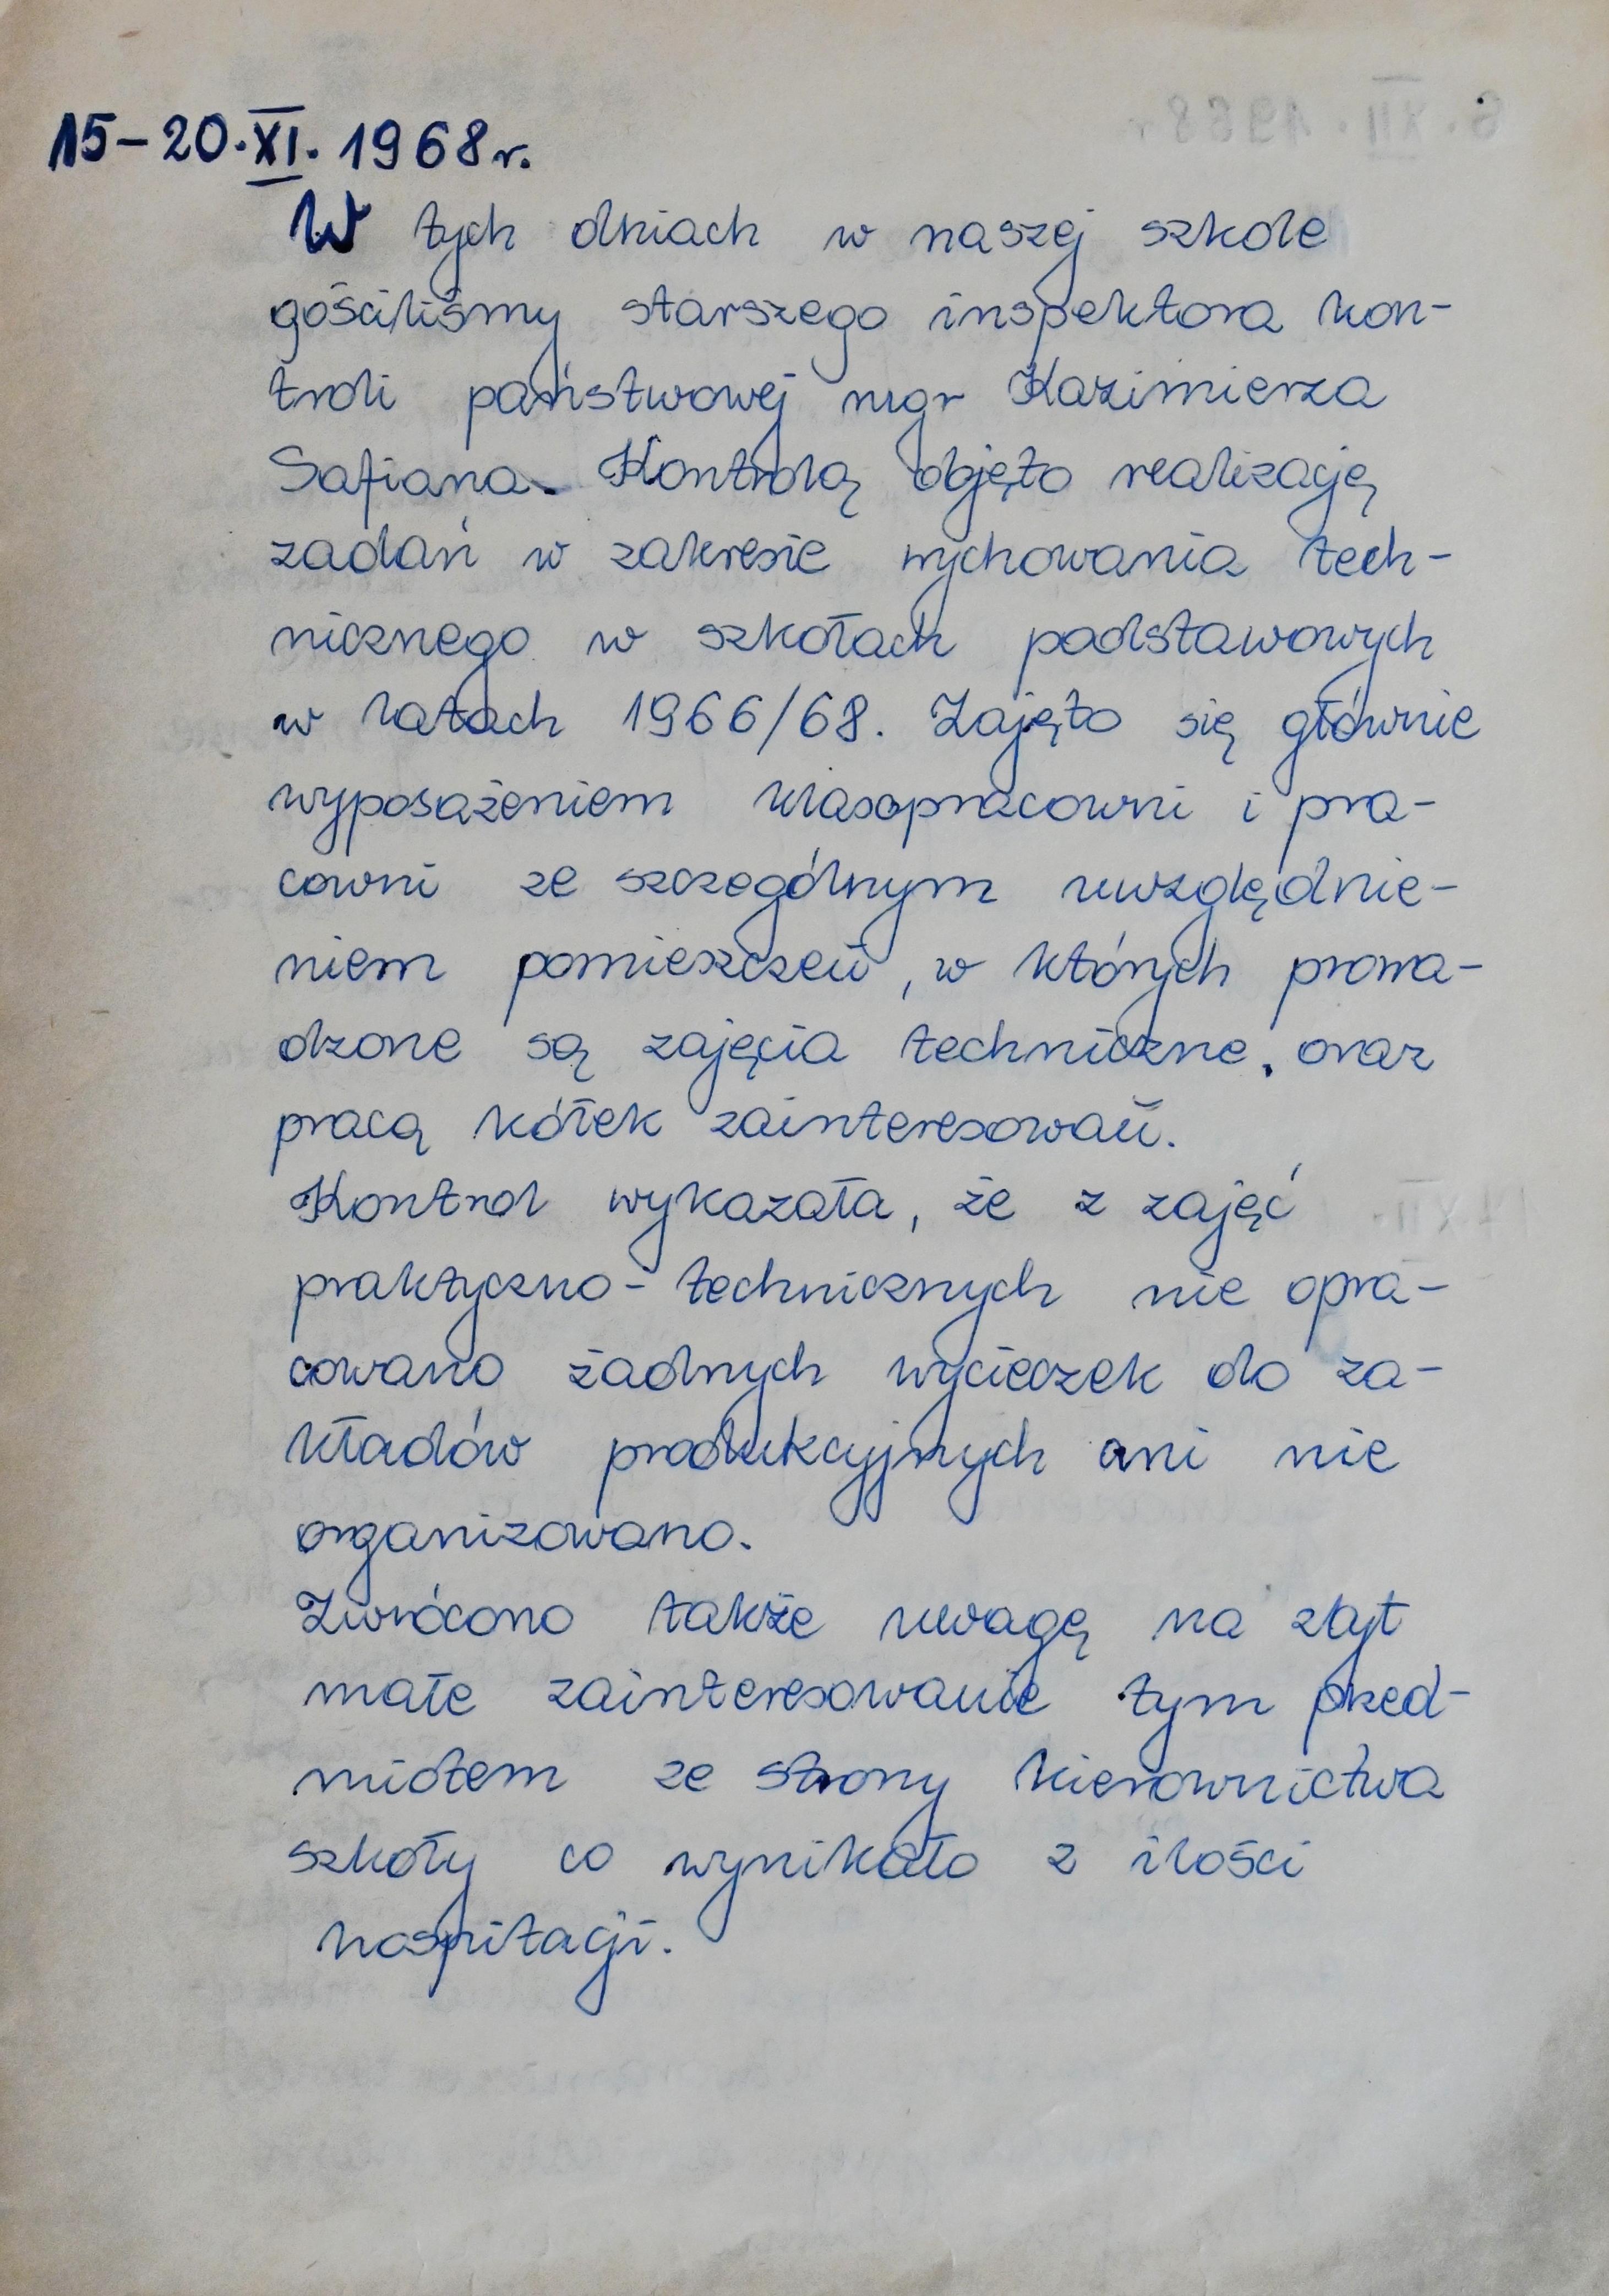 15-20.XI.1968r.
W tych dniach w naszej szkole
gościliśmy starszego inspektora kon-
troli państwowej mgr Kazimierza
Safiana. Kontrolą objęto realizację
zadań w zakresie wychowania tech-
nicznego w szkołach podstawowych
w latach 1966/68. Zajęto się głównie
wyposażeniem klasopracowni i pra-
cowni ze szczególnym uwzględnie-
niem pomieszczeń, w których prowa-
dzone są zajęcia techniczne, oraz
pracą kółek zainteresowań.
Kontrol wykazała, że z zajęć
praktyczno-technicznych nie opra-
cowano żadnych wycieczek do za-
kładów produkcyjnych ani nie
organizowano.
Zwrócono także uwagę na zbyt
małe zainteresowanie tym przed-
miotem ze strony kierownictwa
szkoły co wynikało z ilości
hospitacji.